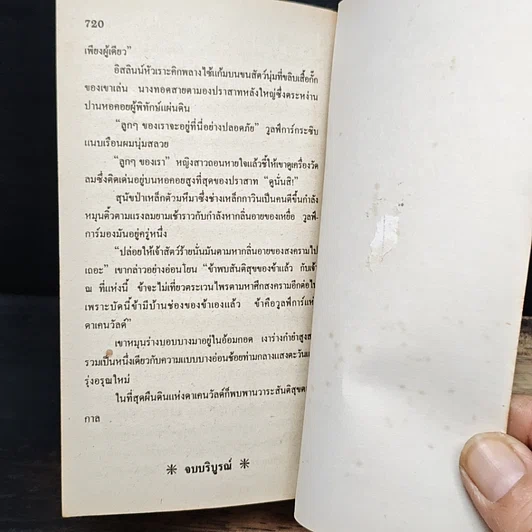 720
เพียงผู้เดียว”
อิสลินน์หัวเราะคิกพลางใช้แก้มบนขนสัตว์นุ่มที่ขลิบเสื้อกั๊ก
ของเขาเล่น นางทอดสายตามองปราสาทหลังใหญ่ซึ่งตระหง่าน
ปานหอคอยผู้พิทักษ์แผ่นดิน
“ลูกๆ ของเราจะอยู่ที่นี่อย่างปลอดภัย” วูลฟ์การ์กระซิบ
แนบเรือนผมนุ่มสลวย
“ลูกๆ ของเรา” หญิงสาวถอนหายใจแล้วชี้ให้เขาดูเครื่องวัด
ลมซึ่งติดเด่นอยู่บนหอคอยสูงที่สุดของปราสาท “ดูนั่นสิ!”
สุนัขป่าเหล็กตัวมหึมาซึ่งช่างเหล็กกาวินเป็นคนตีขึ้นกำลัง
หมุนติ้วตามแรงลมยามเช้าราวกับกำลังหากลิ่นอายของเหยื่อ วูลฟ์
การ์มองมันอยู่ครู่หนึ่ง
“ปล่อยให้เจ้าสัตว์ร้ายนั่นมันตามหากลิ่นอายของสงครามไป
เถอะ” เขากล่าวอย่างอ่อนโยน “ข้าพบสันติสุขของข้าแล้ว กับเจ้า
ณ ที่แห่งนี้ ข้าจะไม่เที่ยวตระเวนไพรตามหาศึกสงครามอีกต่อไป
เพราะบัดนี้ข้ามีบ้านช่องของข้าเองแล้ว ข้าคือวูลฟ์การ์แห่
ดาเคนวัลด์”
เขาหมุนร่างบอบบางมาอยู่ในอ้อมกอด เงาร่างกำยำสูงส
รวมเป็นหนึ่งเดียวกับความแบบบางอ่อนช้อยท่ามกลางแสงตะวัน
รุ่งอรุณใหม่
ในที่สุดผืนดินแห่งดาเคนวัลด์ก็พบพานวาระสันติสุข
กาล
✳ จบบริบูรณ์ ✳